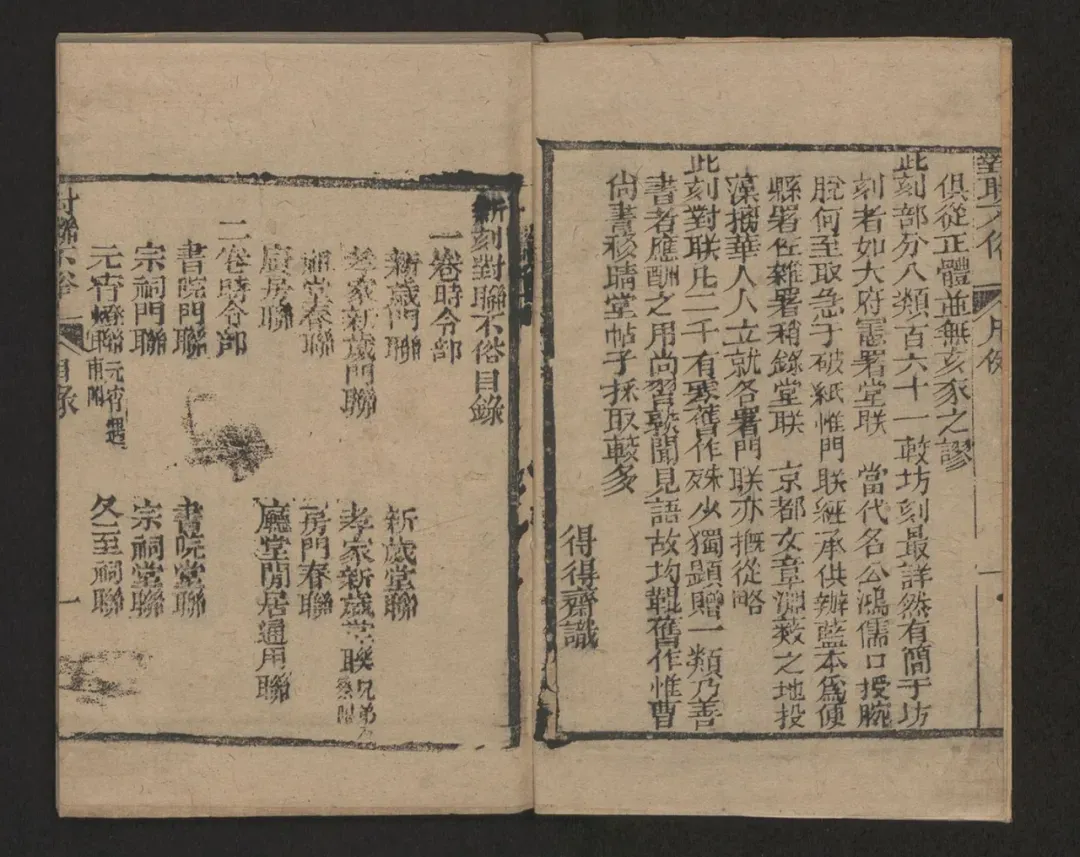 對聯不俗 凡例 一
俱從正體並無亥豕之謬
此刻部分八類百六十一較坊刻最詳然有簡于坊
刻者如大府憲署堂联 當代名公鴻儒口授腕
脫何至取急于破紙惟門联經承供辦藍本為便
縣署佐雜署稍錄堂联 京都文章淵薮之地投
藻摛華人人立就各署門联亦摡從略
此刻對联凡二千有零舊作殊少獨題贈一類乃善
書者應酬之用尚習欵聞見語故均輯舊作惟曹
尙書秘晴堂帖子採取較多
得得齋識
新刻對聯不俗目錄
一卷時令部
新歲門聯 新歲堂聯
孝家新歲門聯 孝家新歲堂聯
廻堂春聯 房門春聯
廚房聯 廳堂閒居通用聯
二卷時令部
書院門聯 書院堂聯
宗祠門聯 宗祠堂聯
元宵燈聯 冬至祠聯
對聯不俗 目錄 一